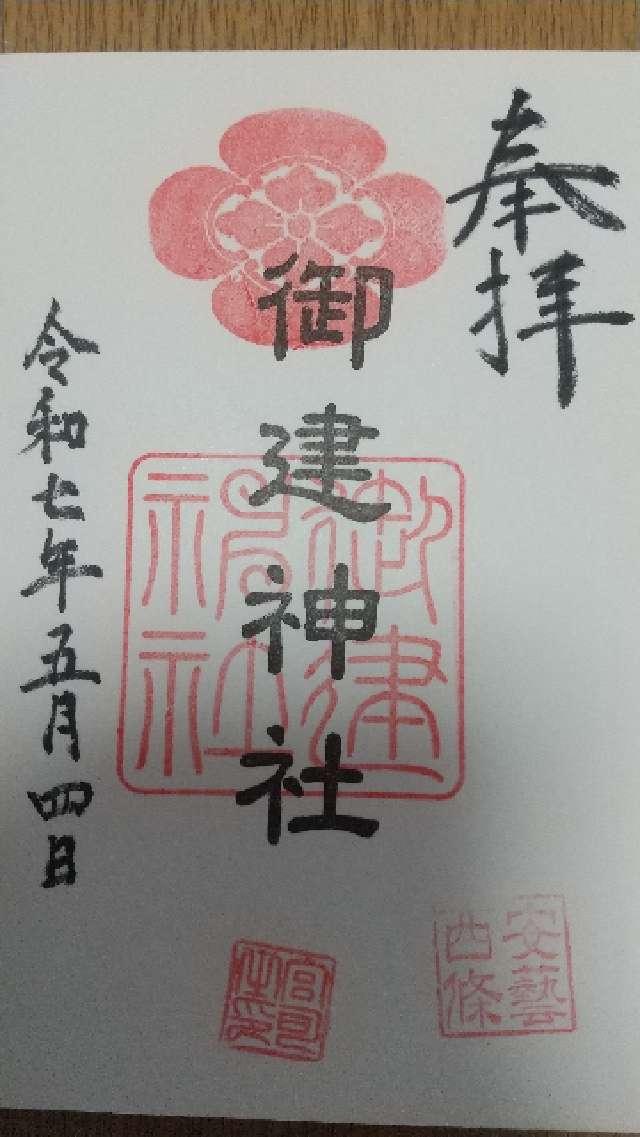 奉拝
御建神社
御建神社
令和七年五月四日
安藝西條
宮司之印